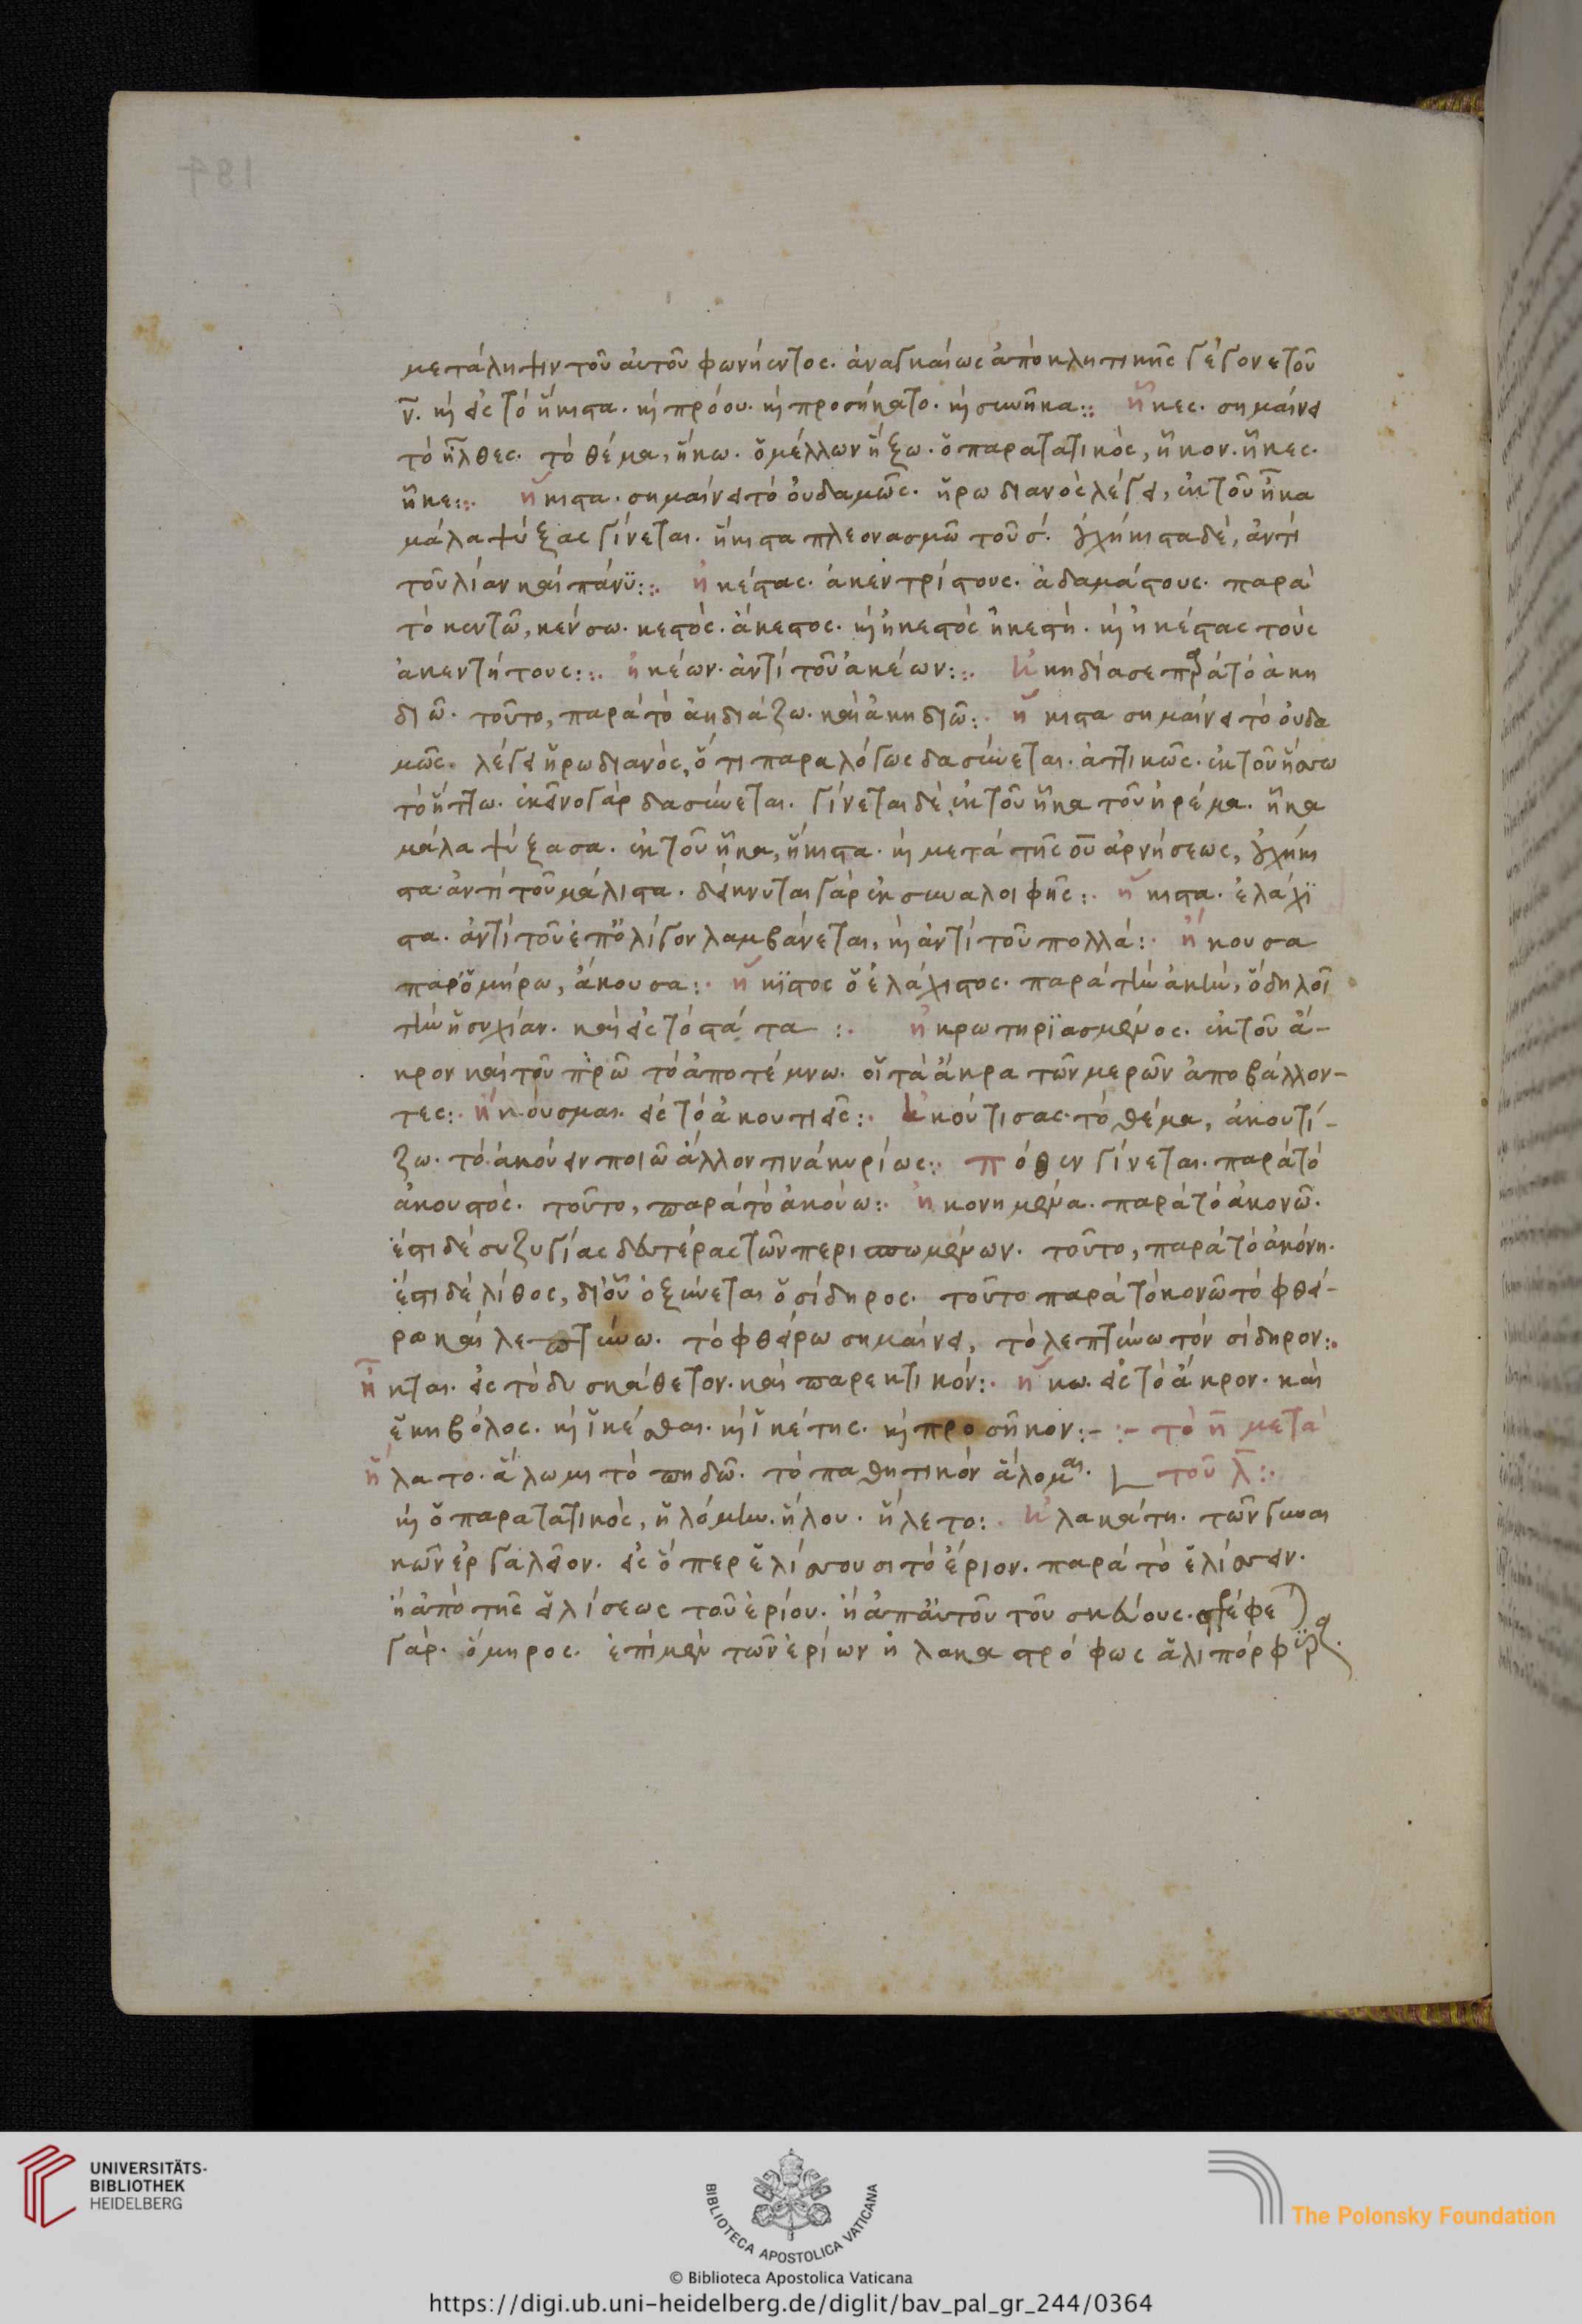 μετάληψιν τοῦ αὐτοῦ φωνήεντος. ἀναγκαίως ἀπὸ κλητικῆς γέγονε τοῦ
ν̅. καὶ εἰς τὸ ἥκιστα. καὶ πρόου. καὶ προσήκατο. καὶ συνῆκα:: ἧκες. σημαίνει
τὸ ἦλθες. τὸ θέμα, ἥκω. ὁ μέλλων ἥξω. ὁ παρατατικὸς, ἧκον. ἧκες.
ἧκε:: ἥκιστα. σημαίνει τὸ οὐδαμῶς. ἡρωδιανὸς λέγει, ἐκ τοῦ ἦκα
μάλα ψύξας γίνεται. ἥκιστα πλεονασμῶ τοῦ σ. οὐχήκιστα δὲ, ἀντὶ
τοῦ λίαν καὶ πάνϋ:: ἠκέστας. ἀκεντρίστους. ἀδαμάστους. παρὰ
τὸ κεντῶ, κένσω. κεστὸς. ἄκεστος. καὶ ἠκεστὸς ἠκεστὴ. καὶ ἠκέστας τοὺς
ἀκεντήτους:: ἠκέων. ἀντὶ τοῦ ἀκέων:: ἠκηδίασε παρὰ τὸ ἀκη
διῶ. τοῦτο, παρὰ τὸ ἀκηδιάζω. καὶ ἀκηδιῶ: ἥκιστα σημαίνει τὸ οὐδα
μῶς. λέγει ἡρωδιανὸς, ὅτι παραλόγως δασύνεται. ἀττικῶς. ἐκ τοῦ ἥσσω
τὸ ἥττω. ἐκεῖνο γὰρ δασύνεται. γίνεται δὲ ἐκ τοῦ ἦκα τοῦ ἠρέμα. ἧκα
μάλα ψύξασα. ἐκ τοῦ ἧκα, ἥκιστα. καὶ μετὰ τῆς οὐ ἀρνήσεως, οὐχήκι
στα ἀντὶ τοῦ μάλιστα. δείκνυται γὰρ ἐκ συναλοιφῆς: ἥκιστα. ἐλάχι
στα. ἀντὶ τοῦ ἐπ' ὀλίγον λαμβάνεται, καὶ ἀντὶ τοῦ πολλά: ἤκουσα
παρ' ὁμήρω, ἄκουσα: ἥκϊστος ὁ ἐλάχιστος. παρὰ τὴν ἀκὴν, ὃ δηλοῖ
τὴν ἡσυχίαν. καὶ εἰς τὸ στάτα :. ἠκρωτηρϊασμένος. ἐκ τοῦ ἄ-
κρον καὶ τοῦ τηρῶ τὸ ἀποτέμνω. οἱ τὰ ἄκρα τῶν μερῶν ἀποβάλλον-
τες: ἠκόυσμαι. εἰς τὸ ἀκουτιεῖς: ἠκούτισας. τὸ θέμα, ἀκουτί-
ζω. τὸ ἀκούειν ποιῶ ἄλλον τινά κυρίως:: πόθεν γίνεται. παρὰ τὸ
ἀκουστὸς. τοῦτο, παρὰ τὸ ἀκούω: ἠκονημένα. παρὰ τὸ ἀκονῶ.
ἔστι δὲ συζυγίας δευτέρας τῶν περισπωμένων. τοῦτο, παρὰ τὸ ἀκόνη.
ἔστι δὲ λίθος, δι' οὗ ὀξύνεται ὁ σίδηρος. τοῦτο παρὰ τὸ κονῶ τὸ φθεί-
ρω καὶ λεπτύνω. τὸ φθείρω σημαίνει, τὸ λεπτύνω τὸν σίδηρον:.
ἧκται. εἰς τὸ δυσκάθετον. καὶ παρεκτικόν: ἥκω. εἰς τὸ ἄκρον. καὶ
ἑκηβόλος. καὶ ἱκέσθαι. καὶ ἱκέτης. καὶ προσῆκον:- :- τὸ η̅ μετὰ
ἥλατο. ἅλωμι τὸ πηδῶ. τὸ παθητικόν ἅλομαι. τοῦ λ̅:.
καὶ ὁ παρατατικὸς, ἡλόμην. ἥλου. ἥλετο: ἠλακάτη. τῶν γυναι
κῶν ἐργαλεῖον. εἰς ὅπερ ἑλίσσουσι τὸ ἔριον. παρὰ τὸ ἑλίσσειν.
ἢ ἀπὸ τῆς εἱλίσεως τοῦ ἐρίου. ἢ ἀπ' αὐτοῦ τοῦ σκεύους. στρέφε
γὰρ. ὅμηρος. ἐπὶ μὲν τῶν ἐρίων ἠλακα στρόφως ἁλιπόρφϋρ
© Biblioteca Apostolica Vaticana
UNIVERSITÄTS-
BIBLIOTHEK
HEIDELBERG
BIBLIOTECA APOSTOLICA VATICANA
The Polonsky Foundation
https://digi.ub.uni-heidelberg.de/diglit/bav_pal_gr_244/0364